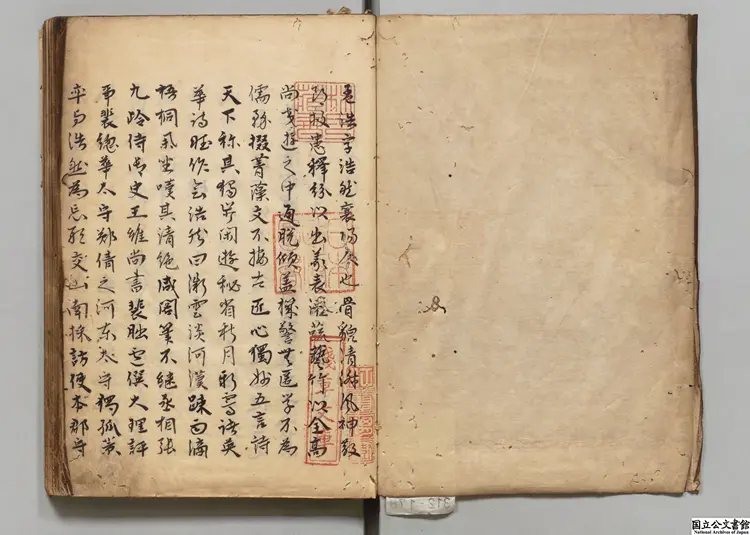 孟浩字浩然襄陽人也骨貌清淑風神散
朗救患釋紛以出義表灌蔬藝竹以全高
尚交遊之中通脱傾盖機警無匿学不為
儒務掇菁藻文不按古匠心獨妙五言詩
天下称其獨步閑遊秘省秋月新霽諸英
華詩賦作會浩然曰微雲淡河漢疎雨滴
梧桐举坐嘆其清絶咸閣筆不継丞相張
九齢侍御史王維尚書裴朏盧僎大理評
事裴總華太守鄭倩之河東太守獨孤策
率与浩然為忘形交山南採訪使本郡守
国立公文書館
National Archives of Japan